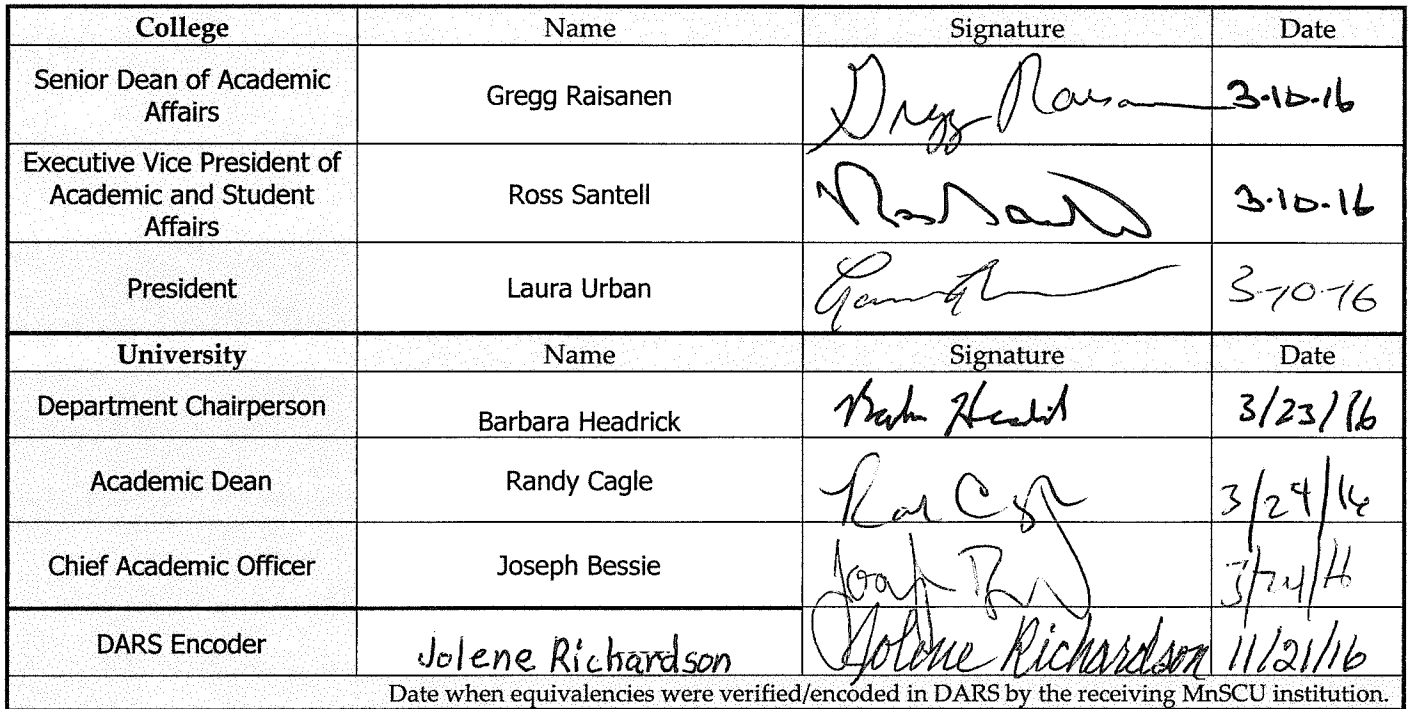 College Name Signature Date
Senior Dean of Academic
Affairs
Gregg Raisanen Gregg Raisanen 3-10-16
Executive Vice President of
Academic and Student
Affairs
Ross Santell Ross Santell 3-10-16
President Laura Urban 3-10-16
University Name Signature Date
Department Chairperson Barbara Headrick 3/23/16
Academic Dean Randy Cagle 3/24/16
Chief Academic Officer Joseph Bessie
DARS Encoder Jolene Richardson Jolene Richardson 11/21/16
Date when equivalencies were verified/encoded in DARS by the receiving MnSCU institution.